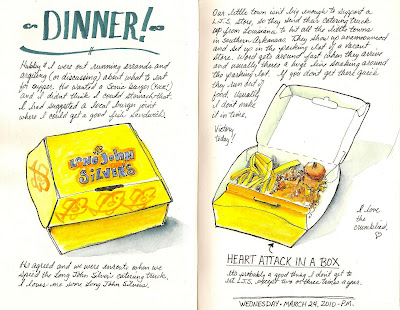 ~DINNER!~
Hubby & I were out running errands and
arguing (or discussing) about what to eat
for supper. He wanted a Sonic burger
and I didn't think I could stomach that.
I had suggested a local burger joint
where I could get a good fish sandwich.
LONG JOHN
SILVER'S
He agreed and we were enroute when we
spied the Long John Silver's catering truck.
I loves me some Long John Silver's.
Our little town isn't big enough to support a
L.J.S. store, so they send their catering truck
up from Louisiana to hit all the little towns
in Southern Arkansas. They show up unannounced
and set up in the parking lot of a vacant
store. Word gets around fast when they arrive
and usually there's a huge line snaking around
the parking lot. If you don't get there quick
they run out of
food. Usually
I don't make it
in time.
Victory
today!
I love
the
crumblies!
HEART ATTACK IN A BOX
It's probably a good thing I don't get to
eat LJS except two or three times a year.
WEDNESDAY · MARCH 24, 2010 · P.M.